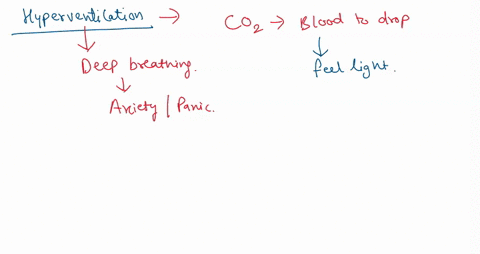 Hyperventilation → CO2 → Blood to drop
Deep breathing. feel light.
Anxiety | Panic.